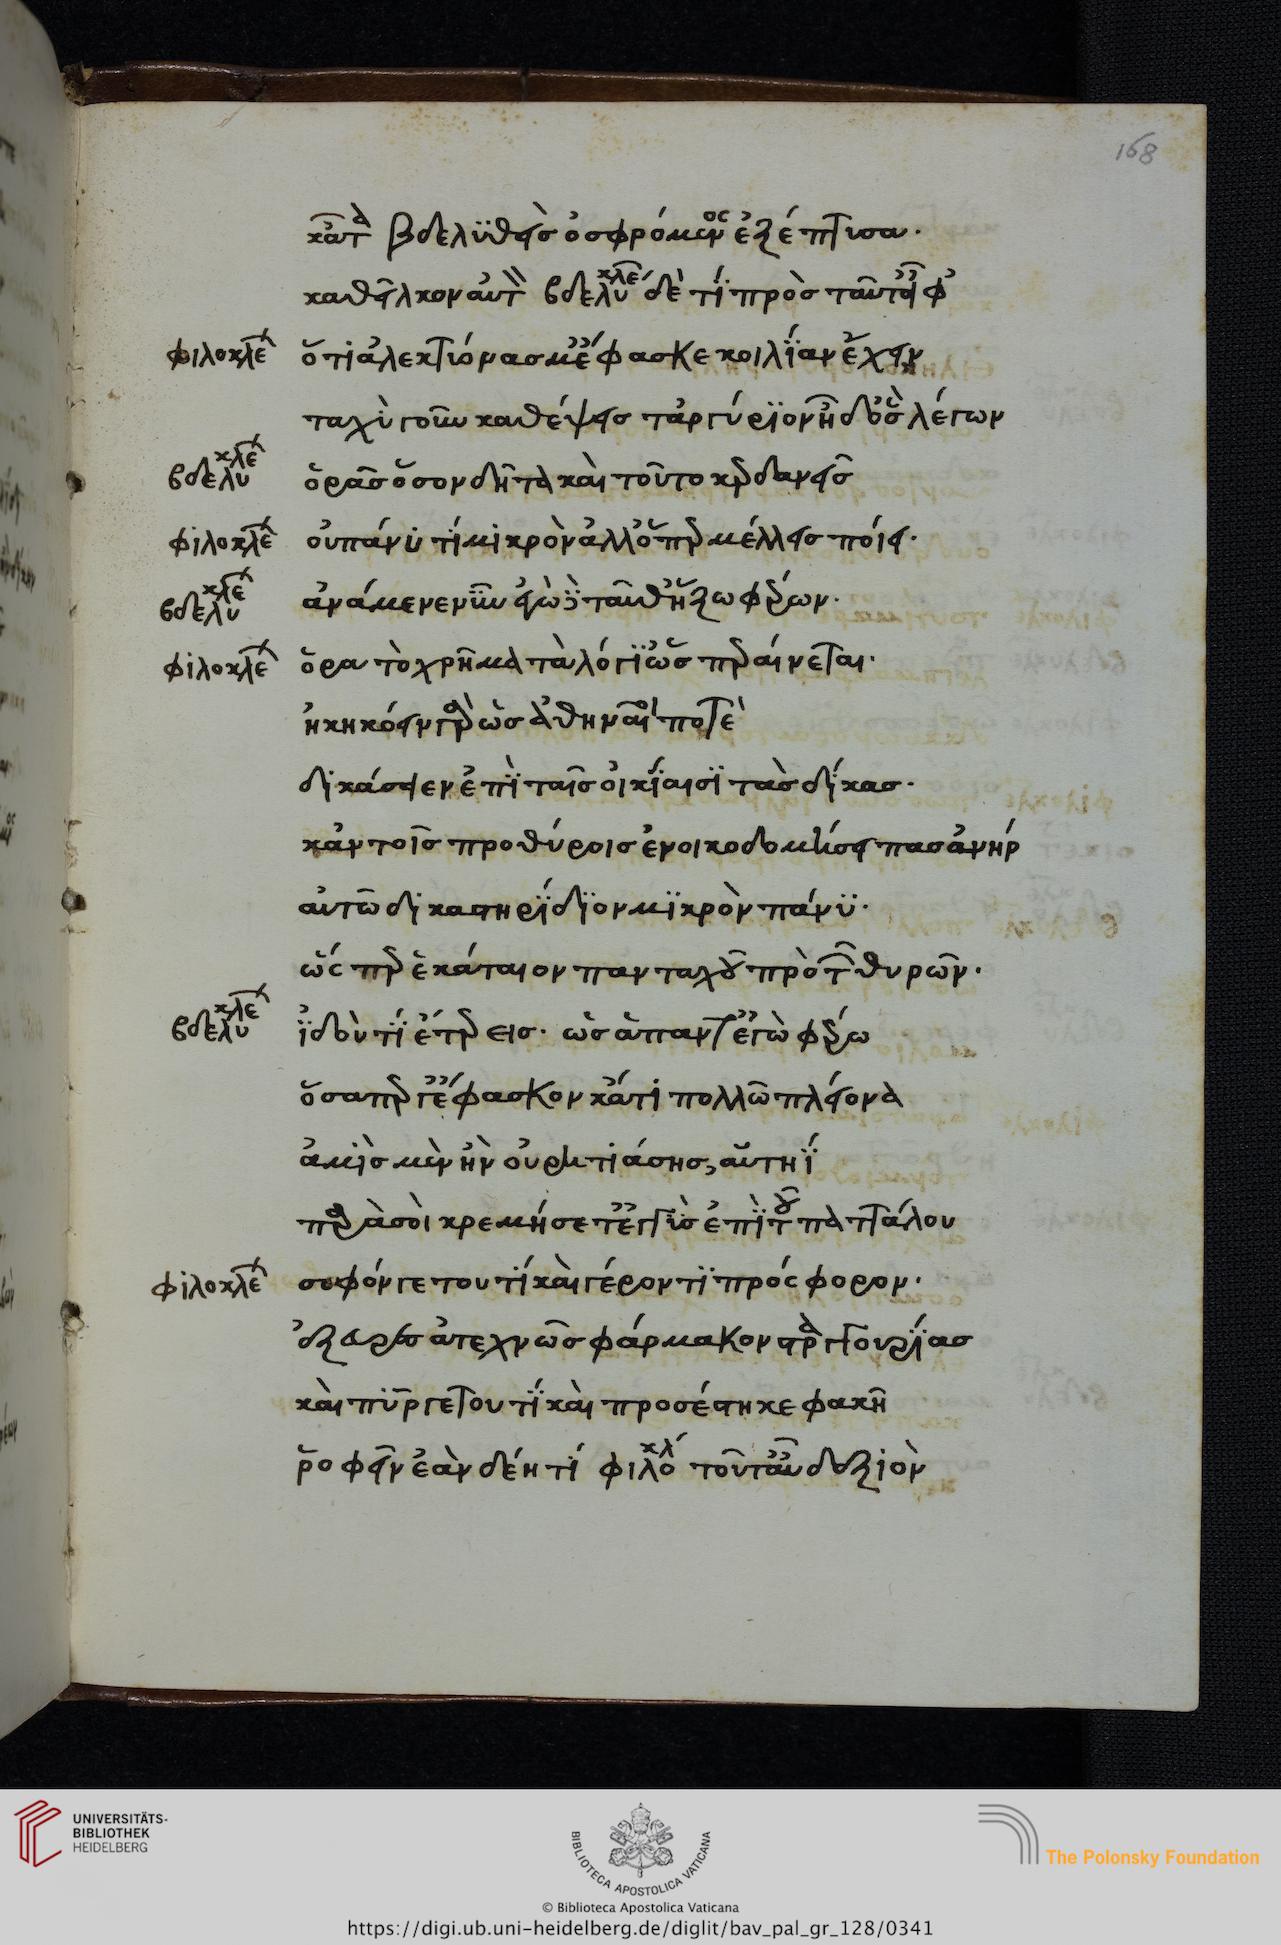 168
κᾆτα βδελυχθεὶς ὀσφρόμενος ἐξέπτισα.
καθεῖλκον αὐτὴν βδελυκλέ δὲ τί πρὸς ταῦτ' εἶφ'
φιλοκλέ ὅτι ἀλεκτρυόνος μ' ἔφασκε κοιλίαν ἔχειν
ταχὺ γοῦν καθέψεις τἀργύριον ἦ δ' ὃς λέγων
βδελυκλέ ὁρᾷς ὅσον δῆτα καὶ τοῦτο κερδανεῖς
φιλοκλέ οὐ πάνυ τι μικρὸν ἀλλ' ὅπερ μέλλεις ποίει.
βδελυκλέ ἀνάμενε νῦν ἐγὼ ταῦθ' ἥξω φέρων.
φιλοκλέ ὅρα τὸ χρῆμα τὰ λόγι' ὡς περαίνεται.
ἠκηκόειν γὰρ ὡς ἀθηναῖοι ποτὲ
δικάσειεν ἐπὶ ταῖς οἰκίαισι τὰς δίκας.
κἀν τοῖς προθύροις ἐνοικοδομήσει πᾶς ἀνήρ
αὐτῷ δικαστηρίδιον μικρὸν πάνυ.
ὥσπερ ἑκάταιον πανταχοῦ πρὸ τῶν θυρῶν.
βδελυκλέ ἰδοὺ τί ἔτ' ἐρεῖς. ὡς ἅπαντ' ἐγὼ φέρω
ὅσαπέρ γ' ἔφασκον κἄτι πολλῷ πλείονα
ἀμὶς μὲν ἢν οὐρητιάσῃς, αὑτηί
παρὰ σοὶ κρεμήσετ' ἐγγὺς ἐπὶ τοῦ παττάλου
φιλοκλέ σοφόν γε τουτί καὶ γέροντι πρόσφορον.
ἐξεῦρες ἀτεχνῶς φάρμακον στραγγουρίας
καὶ πῦρ γε τουτί καὶ προσέστηκε φακῆ
ῥοφεῖν ἐὰν δέῃ τι φιλοκλ τοῦτ' αὖ δεξιὸν
UNIVERSITÄTS-
BIBLIOTHEK
HEIDELBERG
BIBLIOTECA APOSTOLICA VATICANA
The Polonsky Foundation
© Biblioteca Apostolica Vaticana
https://digi.ub.uni-heidelberg.de/diglit/bav_pal_gr_128/0341